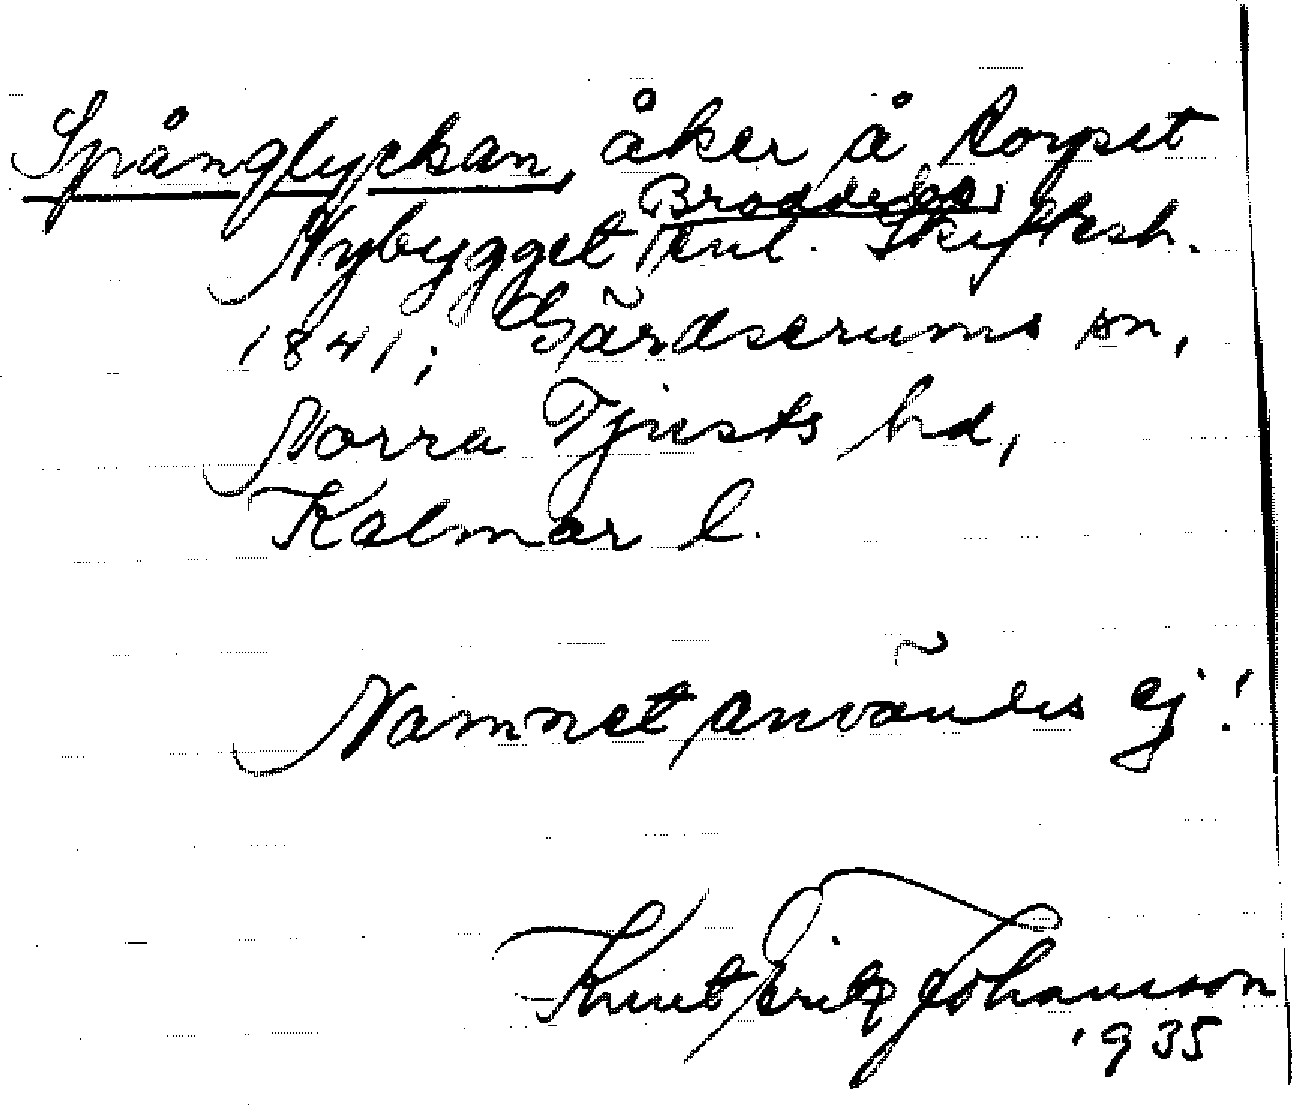 Spånglyckan, åker å torpet
Broddebo,
Nybygget enl. Skiftesh.
1841; Gärdserums sn,
Norra Tjusts hd,
Kalmar l.
Namnet användes ej!
Knut Eric Johansson
1935